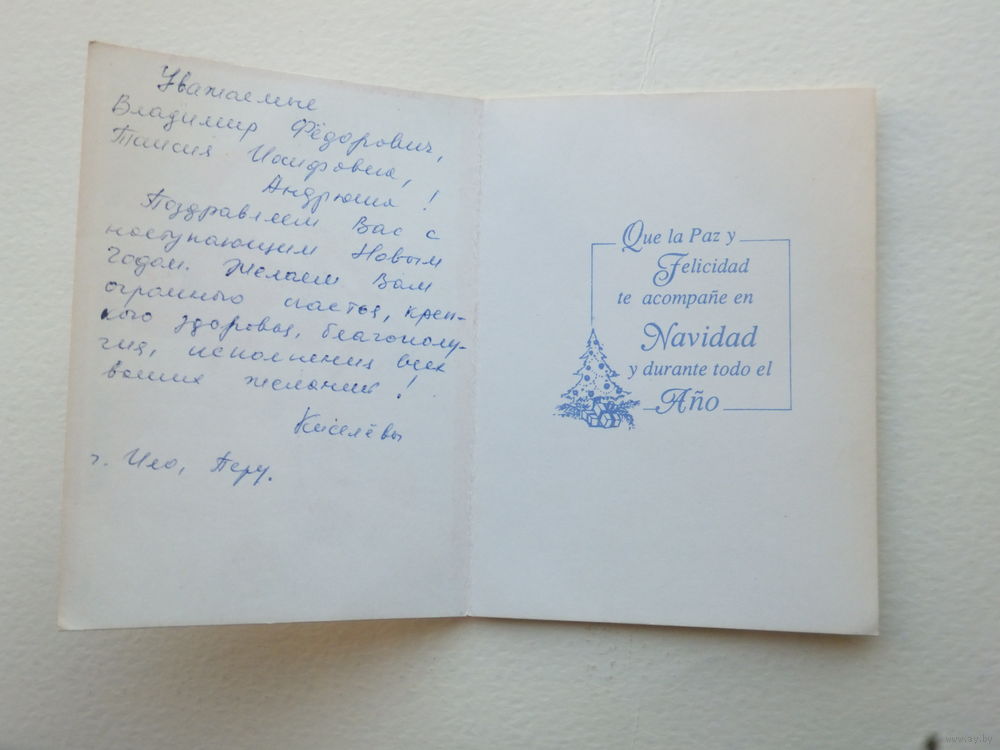 Уважаемые
Владимир Фёдорович,
Таисия Иосифовна,
Андрюша!
Поздравляем Вас с
наступающим Новым
годом. Желаем Вам
огромного счастья, креп-
кого здоровья, благополу-
чия, исполнения всех
ваших желаний!
Киселёвы
г. Ило, Перу.
Que la Paz y
Felicidad
te acompañe en
Navidad
y durante todo el
Año
www.ay.by